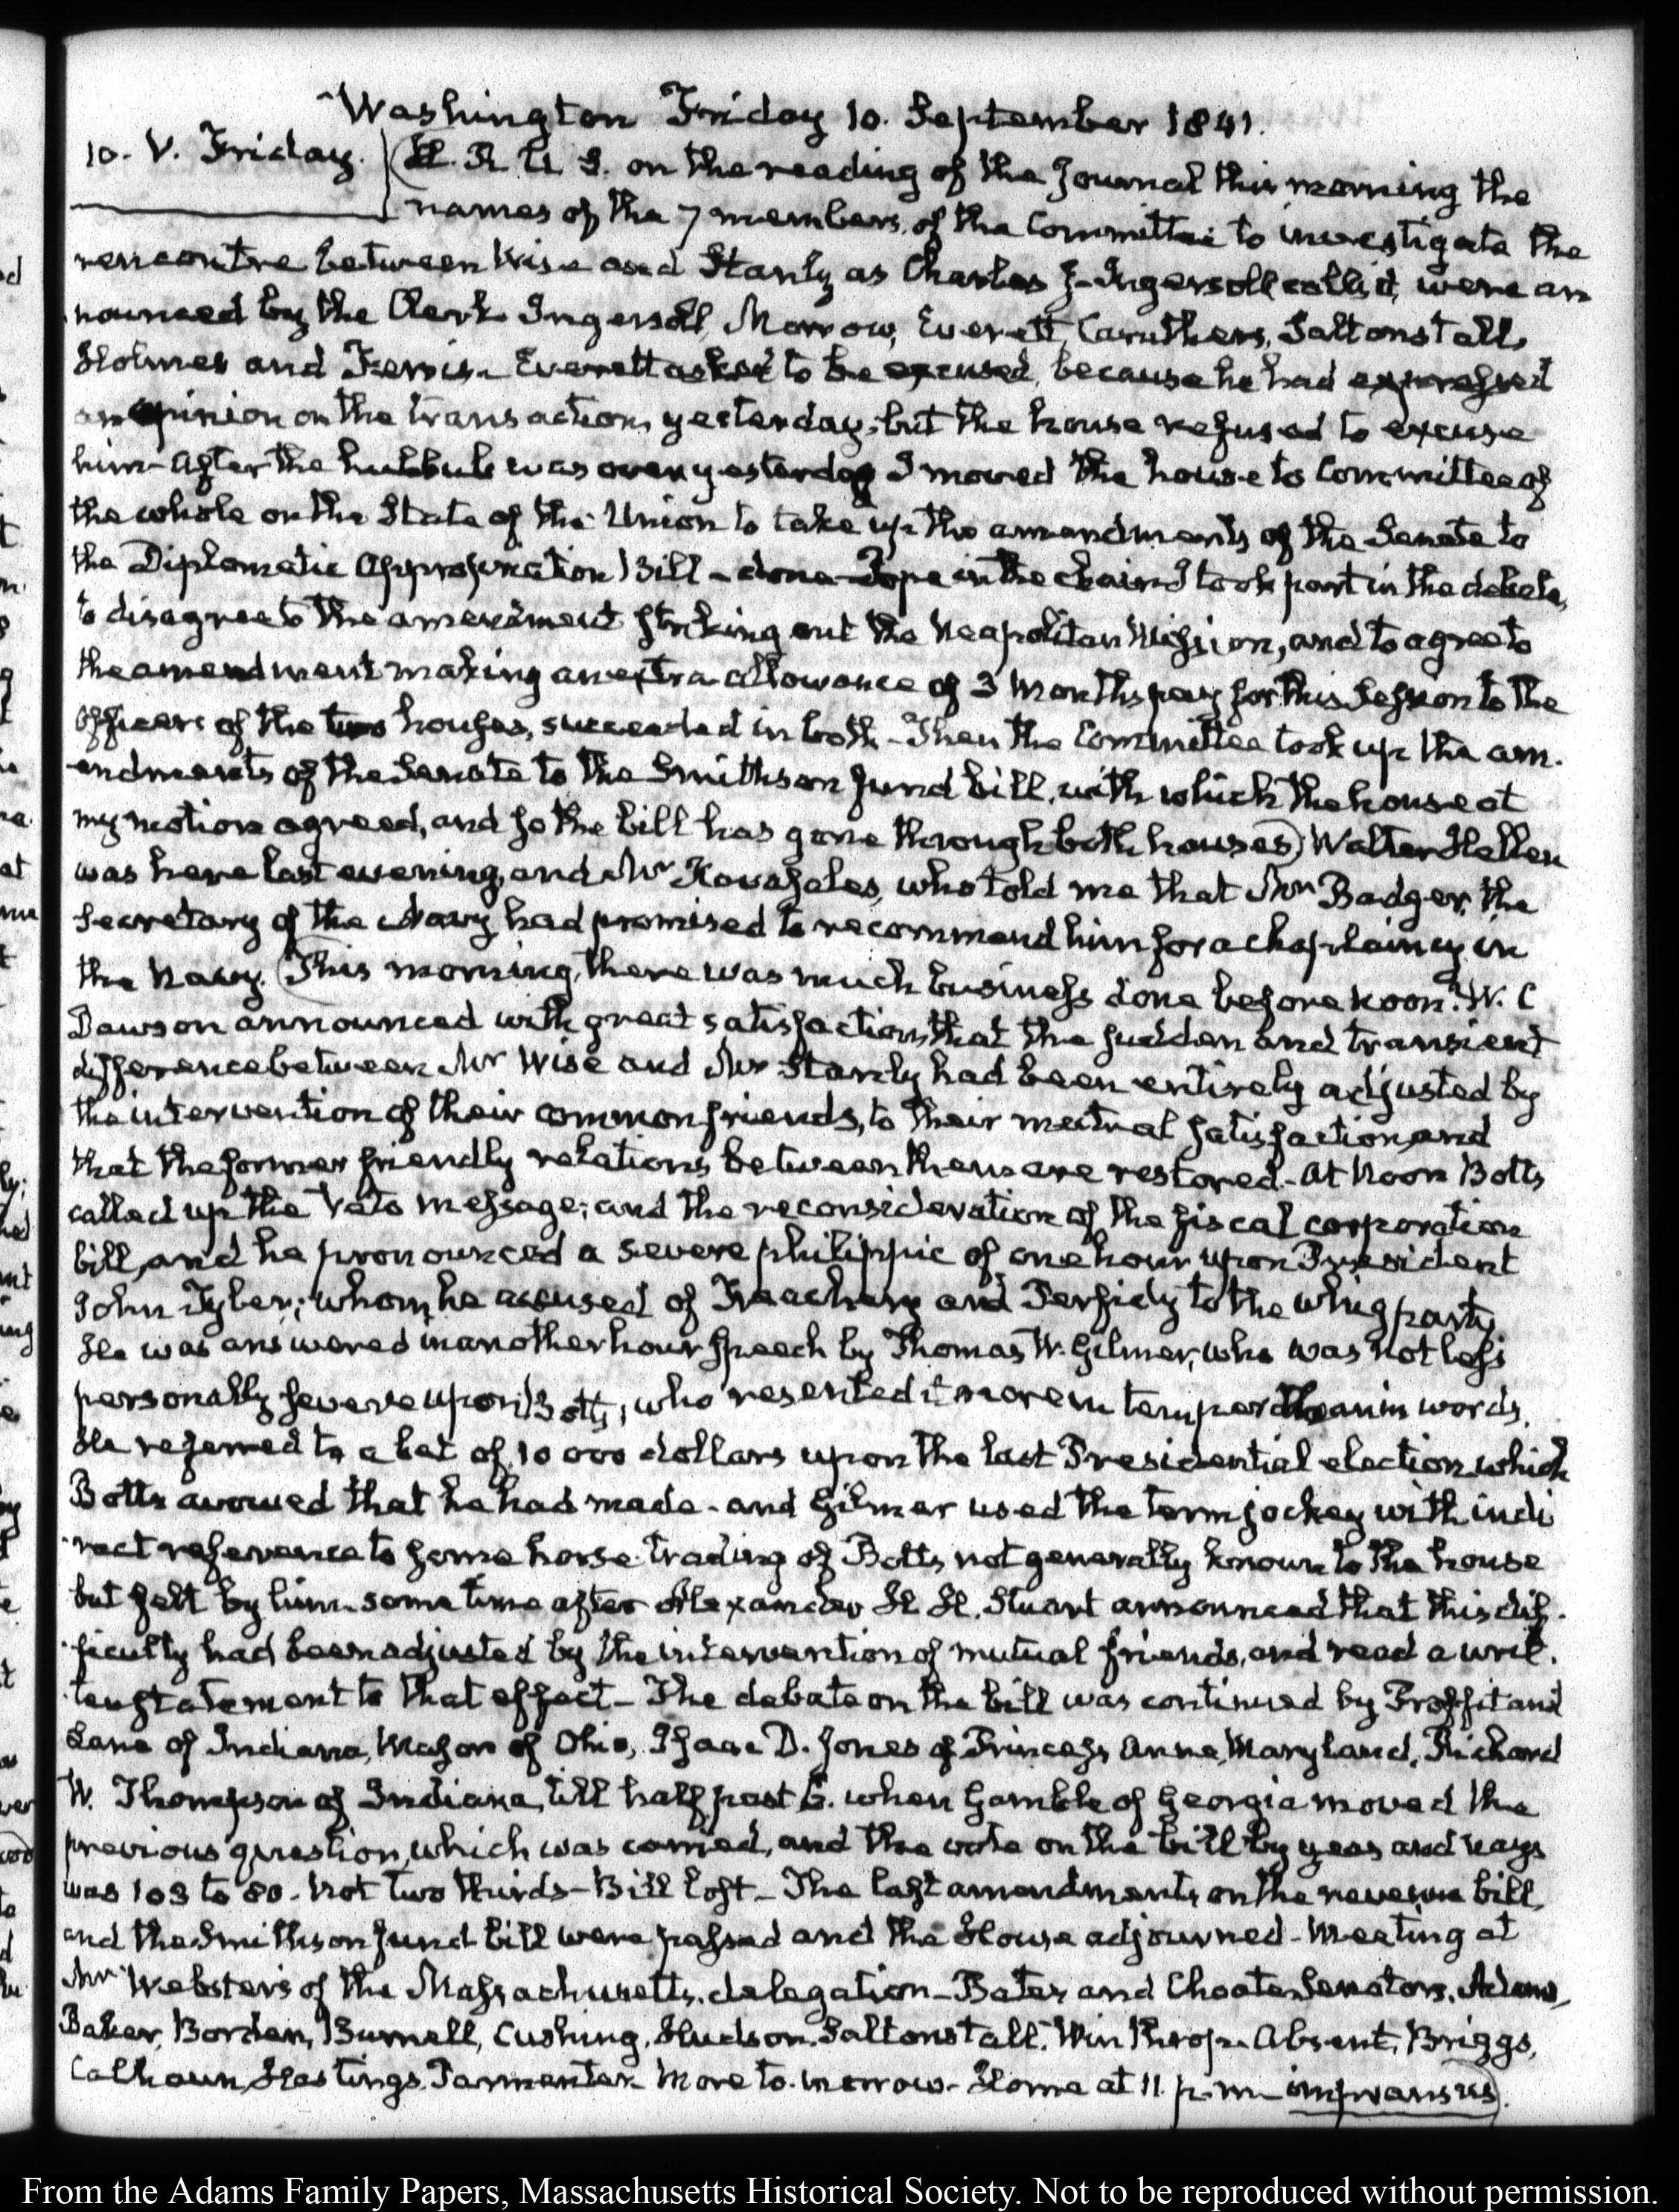 Washington Friday 10. September 1841.
10. V. Friday. (H. R. U S. on the reading of the Journal this morning the
names of the 7 members, of the Committee to investigate the
rencontre between Wise and Stanly as Charles J. Ingersoll called it, were an
nounced by the Clerk Ingersoll, Morrow, Everett, Caruthers, Saltonstall,
Holmes and Ferris. Everett asked to be excused, because he had expressed
an opinion on the transaction, yesterday; but the house refused to excuse
him- After the hubbub was over yesterday I moved the house to Committee of
the whole on the State of the Union to take up the amendments of the Senate to
the Diplomatic Appropriation Bill - done- Pope in the chair I took part in the debate,
to disagree to the amendment striking out the Neapolitan Mission, and to agree to
the amendment making an extra allowance of 3 months pay for this Session to the
Officers of the two houses, succeeded in both - Then the Committee took up the am-
endments of the Senate to the Smithson fund bill, with which the house at
my motion agreed, and so the bill has gone through both houses) Walter Hellen
was here last evening, and Mr , who told me that Mr Badger, the
Secretary of the Navy had promised to recommend him for a chaplaincy in
the Navy. (This morning, there was much business done before noon. W. C
Dawson announced with great satisfaction, that the sudden and transient
difference between Mr Wise and Mr Stanly had been entirely adjusted by
the intervention of their common friends, to their mutual satisfaction, and
that the former friendly relations between them are restored - At Noon Botts
called up the Veto message; and the reconsideration of the fiscal corporation
bill, and he pronounced a severe philippic of one hour upon President
John Tyler; whom he accused of Treachery and Perfidy to the whig party
He was answered in another hour speech by Thomas W. Gilmer, who was not less
personally severe upon Botts, who resented it more in temper than in words.
He referred to a bet of 10 000 dollars upon the last Presidential election which
Botts avowed that he had made - and Gilmer used the term jockey with indi
rect reference to some horse-trading of Botts, not generally known to the house
but felt by him. some time after Alexander H H. Stuart announced that this dif-
ficulty had been adjusted by the intervention of mutual friends, and read a writ-
ten statement to that effect - The debate on the bill was continued by Proffit and
Lane of Indiana, Mason of Ohio, Isaac D. Jones of Princess Anne, Maryland, Richard
W. Thompson of Indiana, till half past 6. when Gamble of Georgia moved the
previous question, which was carried, and the vote on the bill by yeas and nays
was 103 to 80. Not two thirds - Bill lost - The last amendments on the revenue bill,
and the Smithson fund bill were passed and the House adjourned - Meeting at
Mr Webster's of the Massachusetts delegation - Bates and Choate Senators, Adams,
Baker, Borden, Burnell, Cushing, Hudson, Saltonstall, Winthrop. Absent, Briggs,
Calhoun, Hastings, Parmenter. More to-morrow - Home at 11. p.m - impransus).
From the Adams Family Papers, Massachusetts Historical Society. Not to be reproduced without permission.